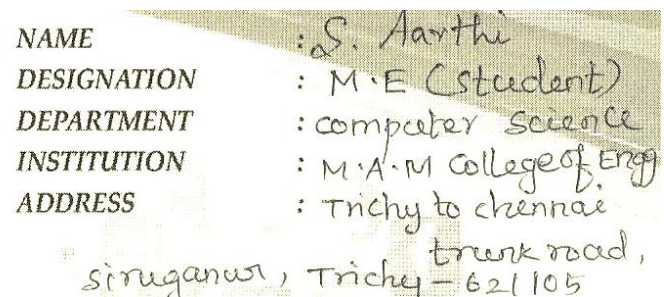 NAME : S. Aarthi
DESIGNATION : M.E (student)
DEPARTMENT : computer science
INSTITUTION : M.A.M College of Engg
ADDRESS : Trichy to chennai
trunk road,
siruganur, Trichy - 621105